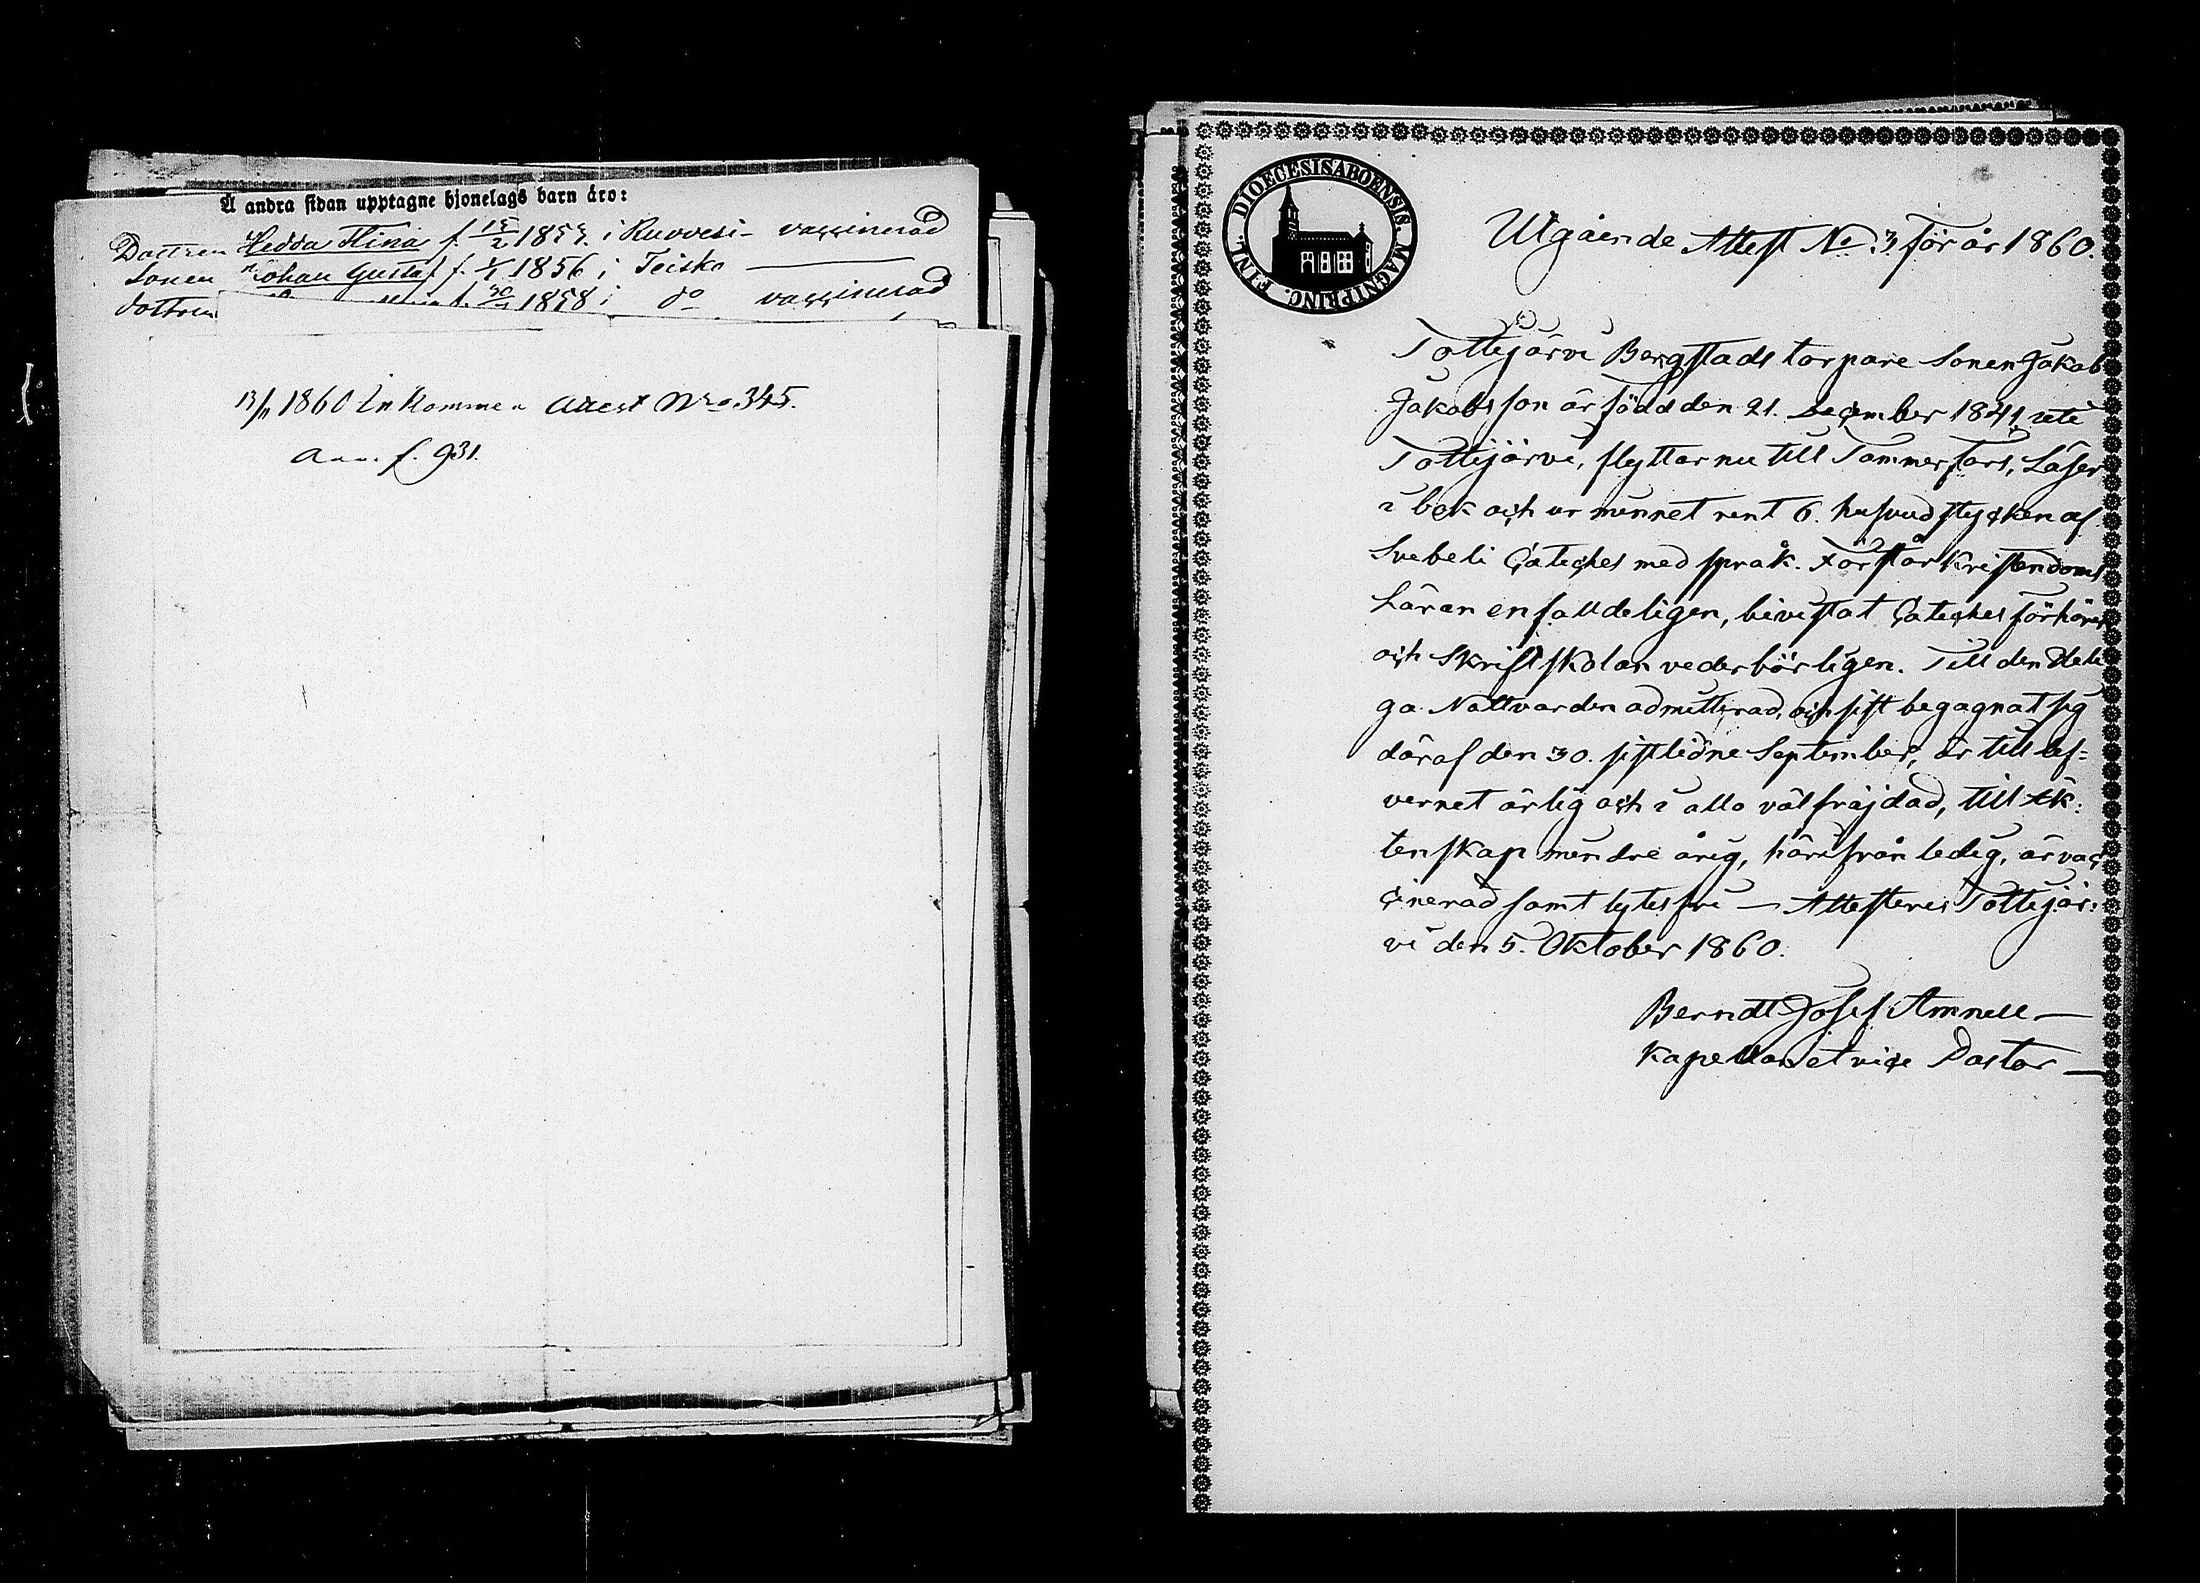 Å andra sidan upptagne hjonelags barn äro:
Dottren Hedda Stina f. 15/2 1854 i Ruovesi vaccinerad
Sonen Johan Gustaf f. 1/1 1856 i Teisko
dottren 1858 i do vaccinerad
13/11 1860 Inkommen Attest No 345.
Ann. f. 931.
DIOECESIS ABOENSIS. MAGNI PRINC. FINL.
Utgående Attest No. 3 för år 1860.
Tottijärvi Bergstads torpare Sonen Jakob
Jakobsson är född den 21. December 1841 uti
Tottijärvi, flyttar nu till Tammerfors, Läser
i bok och ur minnet rent 6. hufvudstycken af
Svebeli Cateches med språk. Förstår Kristendoms
Läran enfalldeligen, bivistat Catechesförhören
och Skriftskolan vederbörligen. Till den Heli
ga Nattvarden admitterad, och sist begagnat sig
däraf den 30. sistledne September, är till lef-
vernet ärlig och i allo välfräjdad, till Äk-
tenskap mindre årig, härifrån ledig, är vac
cinerad samt lytesfri — Attesterar Tottijär-
vi den 5. Oktober 1860.
Berndt Josef Amnell —
Kapellan et vice Pastor —